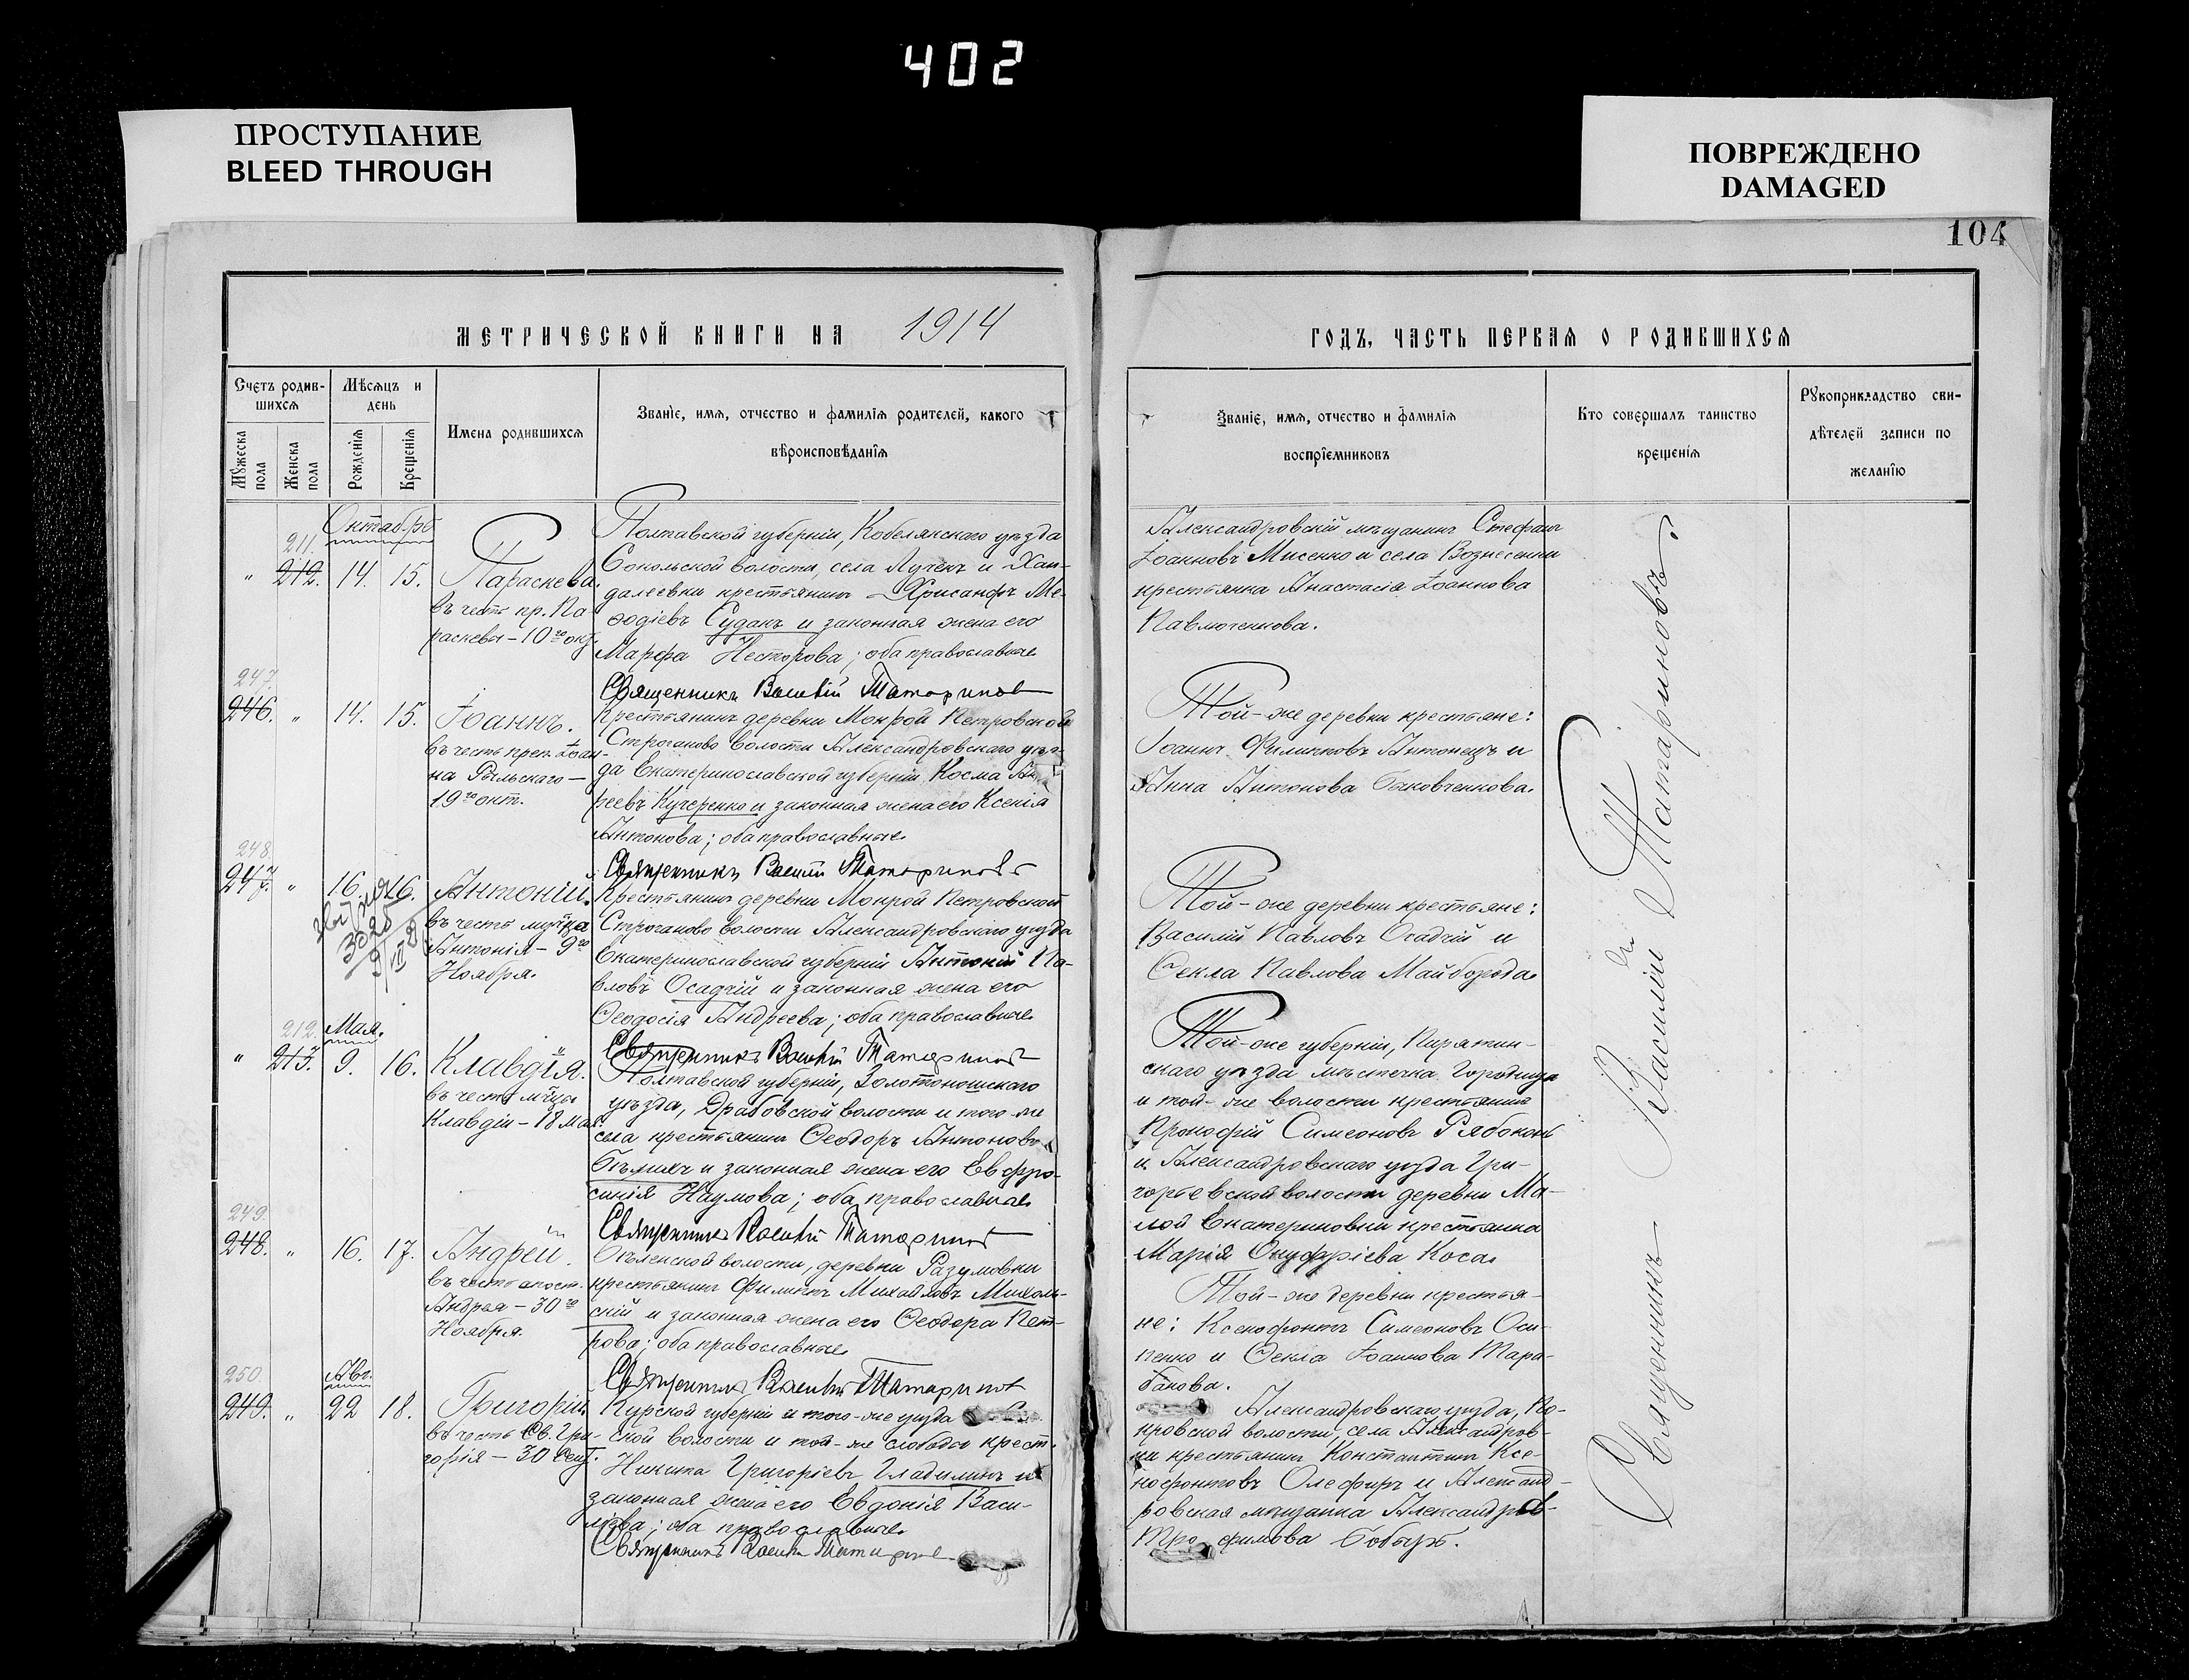 402
ПРОСТУПАНИЕ
BLEED THROUGH
ПОВРЕЖДЕНО
DAMAGED
104
МЕТРИЧЕСКОЙ КНИГИ НА 1914
Счетъ родив-
шихся
Мѣсяцъ и
день
Мужеска
пола
Женска
пола
Рожденія
Крещенія
Имена родившихся
Званіе, имя, отчество и фамилія родителей, какого
вѣроисповѣданія
Октябрь
211.
" 212. 14. 15.
Параскева.
въ честь пр. Па-
раскевы - 10го окт.
Полтавской губерніи, Кобелякскаго уѣзда
Сокольской волости, села Лучекъ и Хан-
далеевки крестьянинъ Хрисанфъ Ме-
ѳодіевъ Суданъ и законная жена его
Марфа Несторова; оба православные
Священникъ Василій Татариновъ
247.
246. " 14. 15.
Іоаннъ.
въ честь преп. Іоан-
на Рыльскаго -
19го окт.
Крестьянинъ деревни Мокрой Петровской
Строганово волости Александровскаго уѣз-
да Екатеринославской губерніи Косма
реевъ Кучеренко и законная жена его Ксенія
Антонова; оба православные
Священникъ Василій Татариновъ
248.
247. " 16. 16.
Антоній.
въ честь мучен.
Антонія - 9го
Ноября.
Крестьянинъ деревни Мокрой Петровской
Строганово волости Александровскаго уѣзда
Екатеринославской губерніи Антоній Па-
вловъ Осадчій и законная жена его
Ѳеодосія Андреева; оба православные
Священникъ Василій Татариновъ
212. Мая.
" 213. 9. 16.
Клавдія.
въ честь мц.
Клавдіи - 18 Мая
Полтавской губерніи, Золотоношскаго
уѣзда, Драбовской волости и того-же
села крестьянинъ Ѳеодоръ Антоновъ
и законная жена его Евфро-
синія Наумова; оба православные
Священникъ Василій Татариновъ
249.
248. " 16. 17.
Андрей.
въ честь апост.
Андрея - 30го
Ноября.
волости, деревни Разумовки
крестьянинъ Филиппъ Михайловъ
скій и законная жена его Ѳеодора Пет-
рова; оба православные
Священникъ Василій Татариновъ
250. Авг.
249. " 22 18.
Григорій.
въ честь Св. Гри-
горія - 30 Сент.
Курской губерніи и того-же уѣзда
ской волости и той-же слободы крест.
Никита Григоріевъ Гладилинъ и
законная жена его Евдокія Васи-
лієва; оба православные
Священникъ Василій
ГОДЪ, ЧАСТЬ ПЕРВАЯ О РОДИВШИХСЯ
Званіе, имя, отчество и фамилія
воспріемниковъ
Кто совершалъ таинство
крещенія
Рукоприкладство сви-
дѣтелей записи по
желанію
Александровскій мѣщанинъ Стефанъ
Іоанновъ Мисенко и села Вознесенки
крестьянка Анастасія Іоаннова
Павлюченкова.
Той-же деревни крестьяне:
Іоаннъ Филипповъ Антонецъ и
Анна Антонова
Той-же деревни крестьяне:
Василій Павловъ Осадчій и
Ѳекла Павлова Майборода
Той-же губерніи, Пирятин-
скаго уѣзда мѣстечка Городища
и той-же волости крестьянинъ
Прокофій Симеоновъ Рябоконь
и Александровскаго уѣзда Гри-
горьевской волости деревни Ма-
лой Екатериновки крестьянка
Марія Онуфріева Коса
Той-же деревни крестья-
не: Ксенофонтъ Симеоновъ Оси-
пенко и Ѳекла Іоаннова Тара-
банова.
Александровскаго уѣзда, По-
кровской волости, села Александров-
ки крестьянинъ Константинъ Ксе-
нофонтовъ Олефиръ и Александ-
ровская мѣщанка Александра
Трофимова Бобырь.
Священникъ Василій Татариновъ.